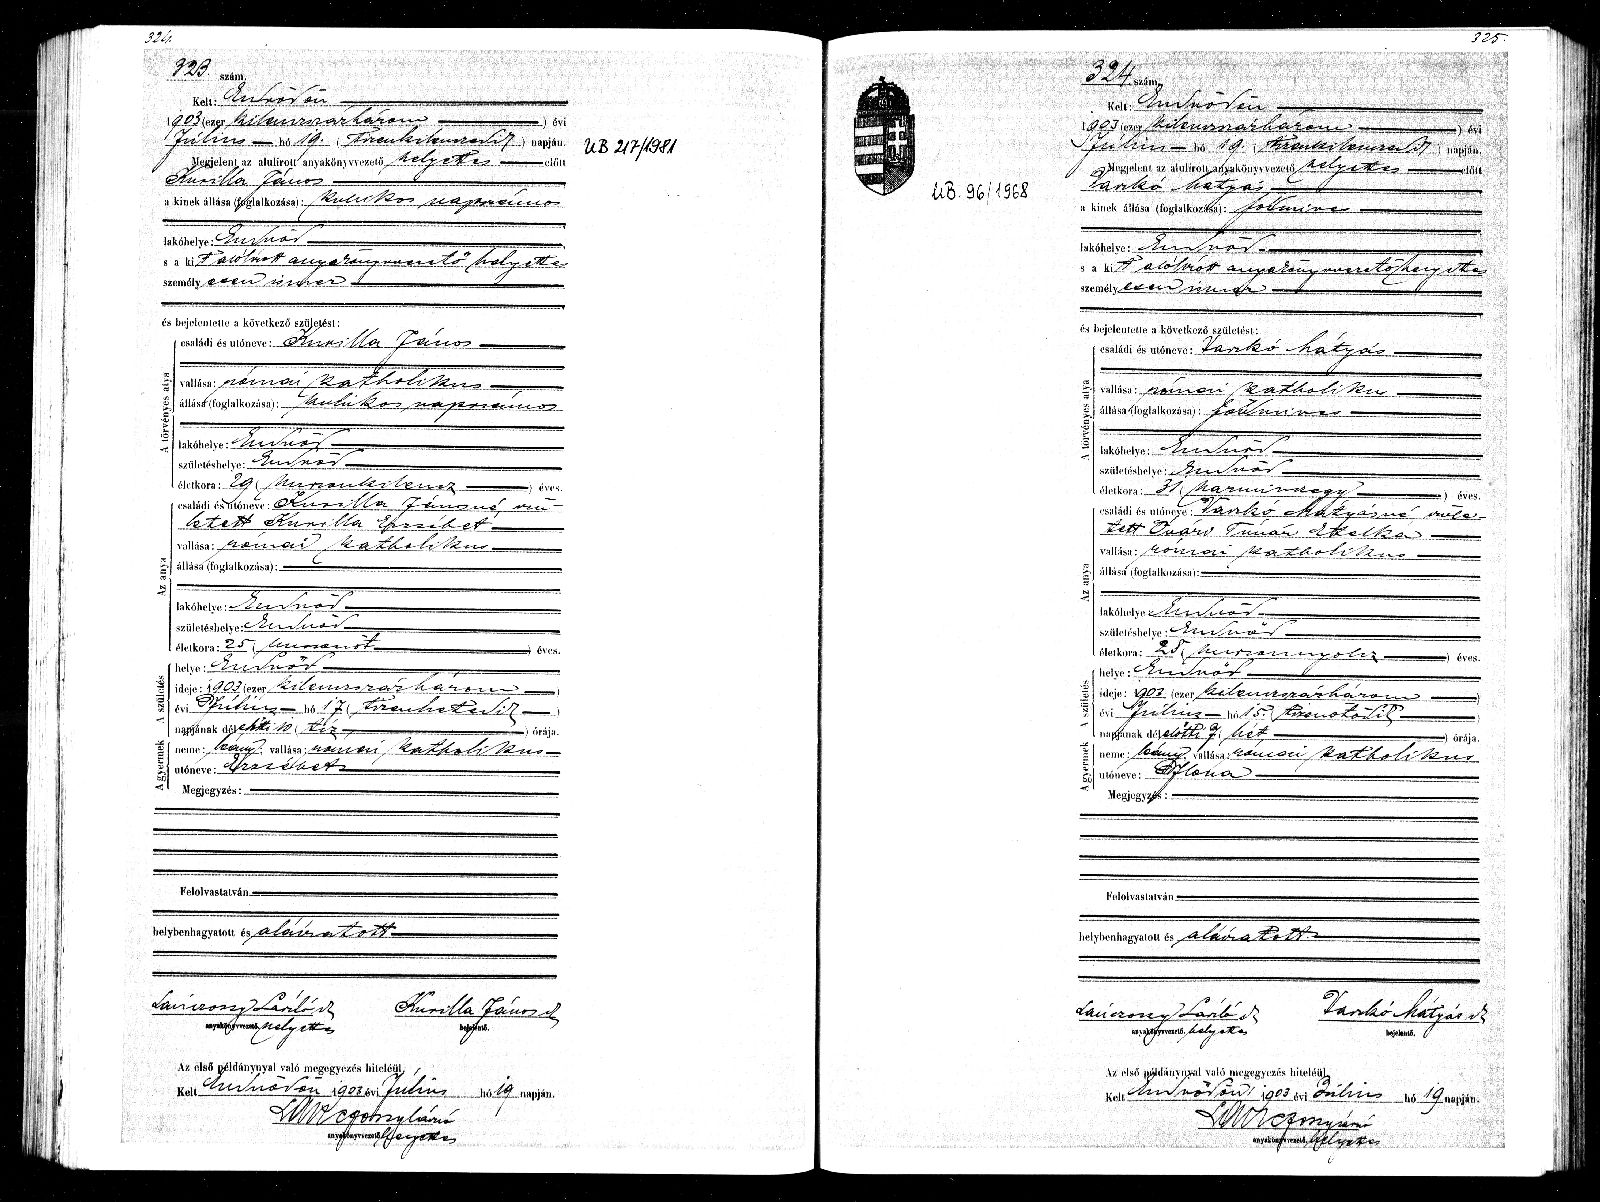 324.
323. szám.
Kelt: Endrődön
1903 (ezer kilenczszázhárom) évi
Július hó 19. (tizenkilenczedik) napján.
Megjelent az alulírott anyakönyvvezető helyettes előtt
Kurilla János
a kinek állása (foglalkozása): kubikos napszámos
lakóhelye: Endrőd
s a kit alólírott anyakönyvvezető helyettes
személyesen ismer
és bejelentette a következő születést:
A törvényes atya
családi és utóneve: Kurilla János
vallása: római katholikus
állása (foglalkozása): kubikos napszámos
lakóhelye: Endrőd
születéshelye: Endrőd
életkora: 29 (huszonkilencz) éves.
Az anya
családi és utóneve: Kurilla Jánosné, szü-
letett Kurilla Erzsébet
vallása: római katholikus
állása (foglalkozása):
lakóhelye: Endrőd
születéshelye: Endrőd
életkora: 25 (huszonöt) éves.
A születés
helye: Endrőd
ideje: 1903 (ezer kilenczszázhárom)
évi Július hó 17 (tizenhetedik)
napjának dél előtti 10 (tíz) órája.
A gyermek
neme: leány vallása: római katholikus
utóneve: Erzsébet
Megjegyzés:
Felolvastatván
helybenhagyatott és aláíratott
Lánczossy László sk Kurilla János sk
anyakönyvvezető. helyettes bejelentő.
Az első példánynyal való megegyezés hiteléül
Kelt Endrődön 1903 évi Július hó 19 napján.
anyakönyvvezető, helyettes
UB 217/1981
325.
324 szám.
Kelt: Endrődön
1903 (ezer kilenczszázhárom) évi
Július hó 19. (tizenkilenczedik) napján.
Megjelent az alulírott anyakönyvvezető helyettes előtt
Varkó Mátyás
a kinek állása (foglalkozása): földmives
lakóhelye: Endrőd
s a kit alólírott anyakönyvvezető helyettes
személyesen ismer
és bejelentette a következő születést:
A törvényes atya
családi és utóneve: Varkó Mátyás
vallása: római katholikus
állása (foglalkozása): földmives
lakóhelye: Endrőd
születéshelye: Endrőd
életkora: 31 (harminczegy) éves.
Az anya
családi és utóneve: Varkó Mátyásné, szüle-
tett Ovári Timár Etelka
vallása: római katholikus
állása (foglalkozása):
lakóhelye: Endrőd
születéshelye: Endrőd
életkora: 28 (huszonnyolcz) éves.
A születés
helye: Endrőd
ideje: 1903 (ezer kilenczszázhárom)
évi Július hó 15. (tizenötödik)
napjának dél előtti 7 (hét) órája.
A gyermek
neme: leány vallása: római katholikus
utóneve: Ilona
Megjegyzés:
Felolvastatván
helybenhagyatott és aláíratott
Lánczossy László sk Varkó Mátyás sk
anyakönyvvezető. helyettes bejelentő.
Az első példánynyal való megegyezés hiteléül
Kelt Endrődön 1903 évi Július hó 19 napján.
anyakönyvvezető, helyettes
UB. 96/1968